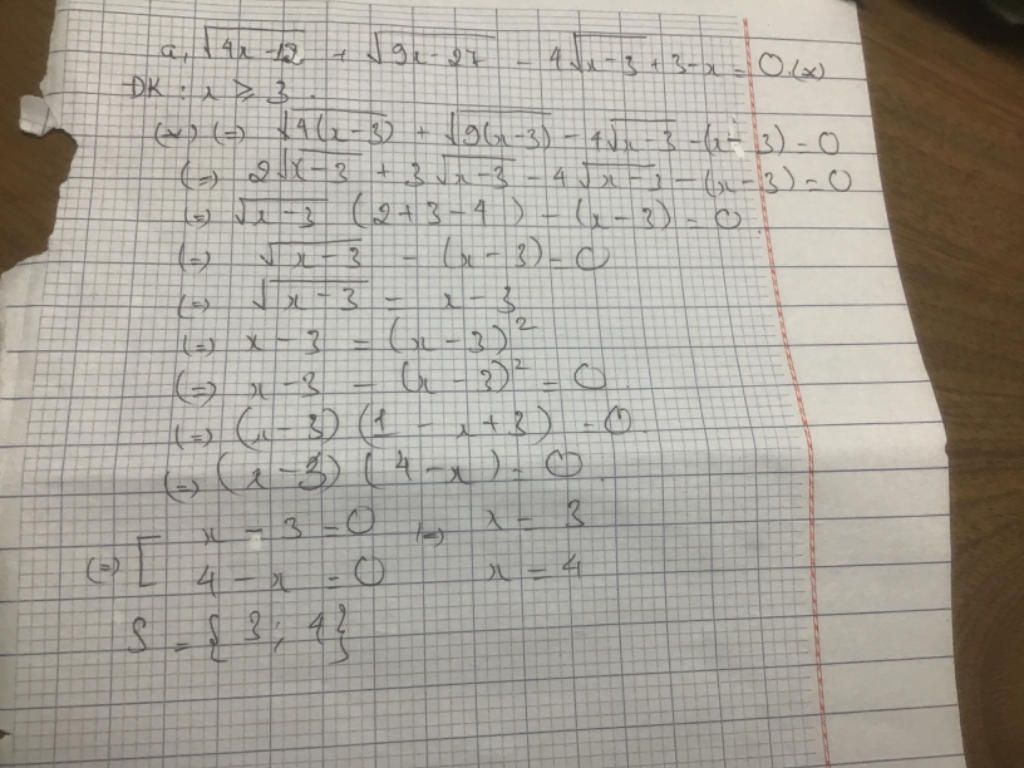 a, √(4x-12) + √(9x-27) - 4√(x-3) + 3-x = 0 (*)
ĐK : x ≥ 3.
(*) (=) √(4(x-3)) + √(9(x-3)) - 4√(x-3) - (x-3) = 0
(=) 2√(x-3) + 3√(x-3) - 4√(x-3) - (x-3) = 0
(=) √(x-3) (2+3-4) - (x-3) = 0.
(=) √(x-3) - (x-3) = 0
(=) √(x-3) = x-3
(=) x-3 = (x-3)²
(=) x-3 - (x-3)² = 0.
(=) (x-3) (1-x+3) = 0.
(=) (x-3) (4-x) = 0.
(=) [ x-3=0 (=) x = 3
4-x = 0 x = 4
S = {3; 4}